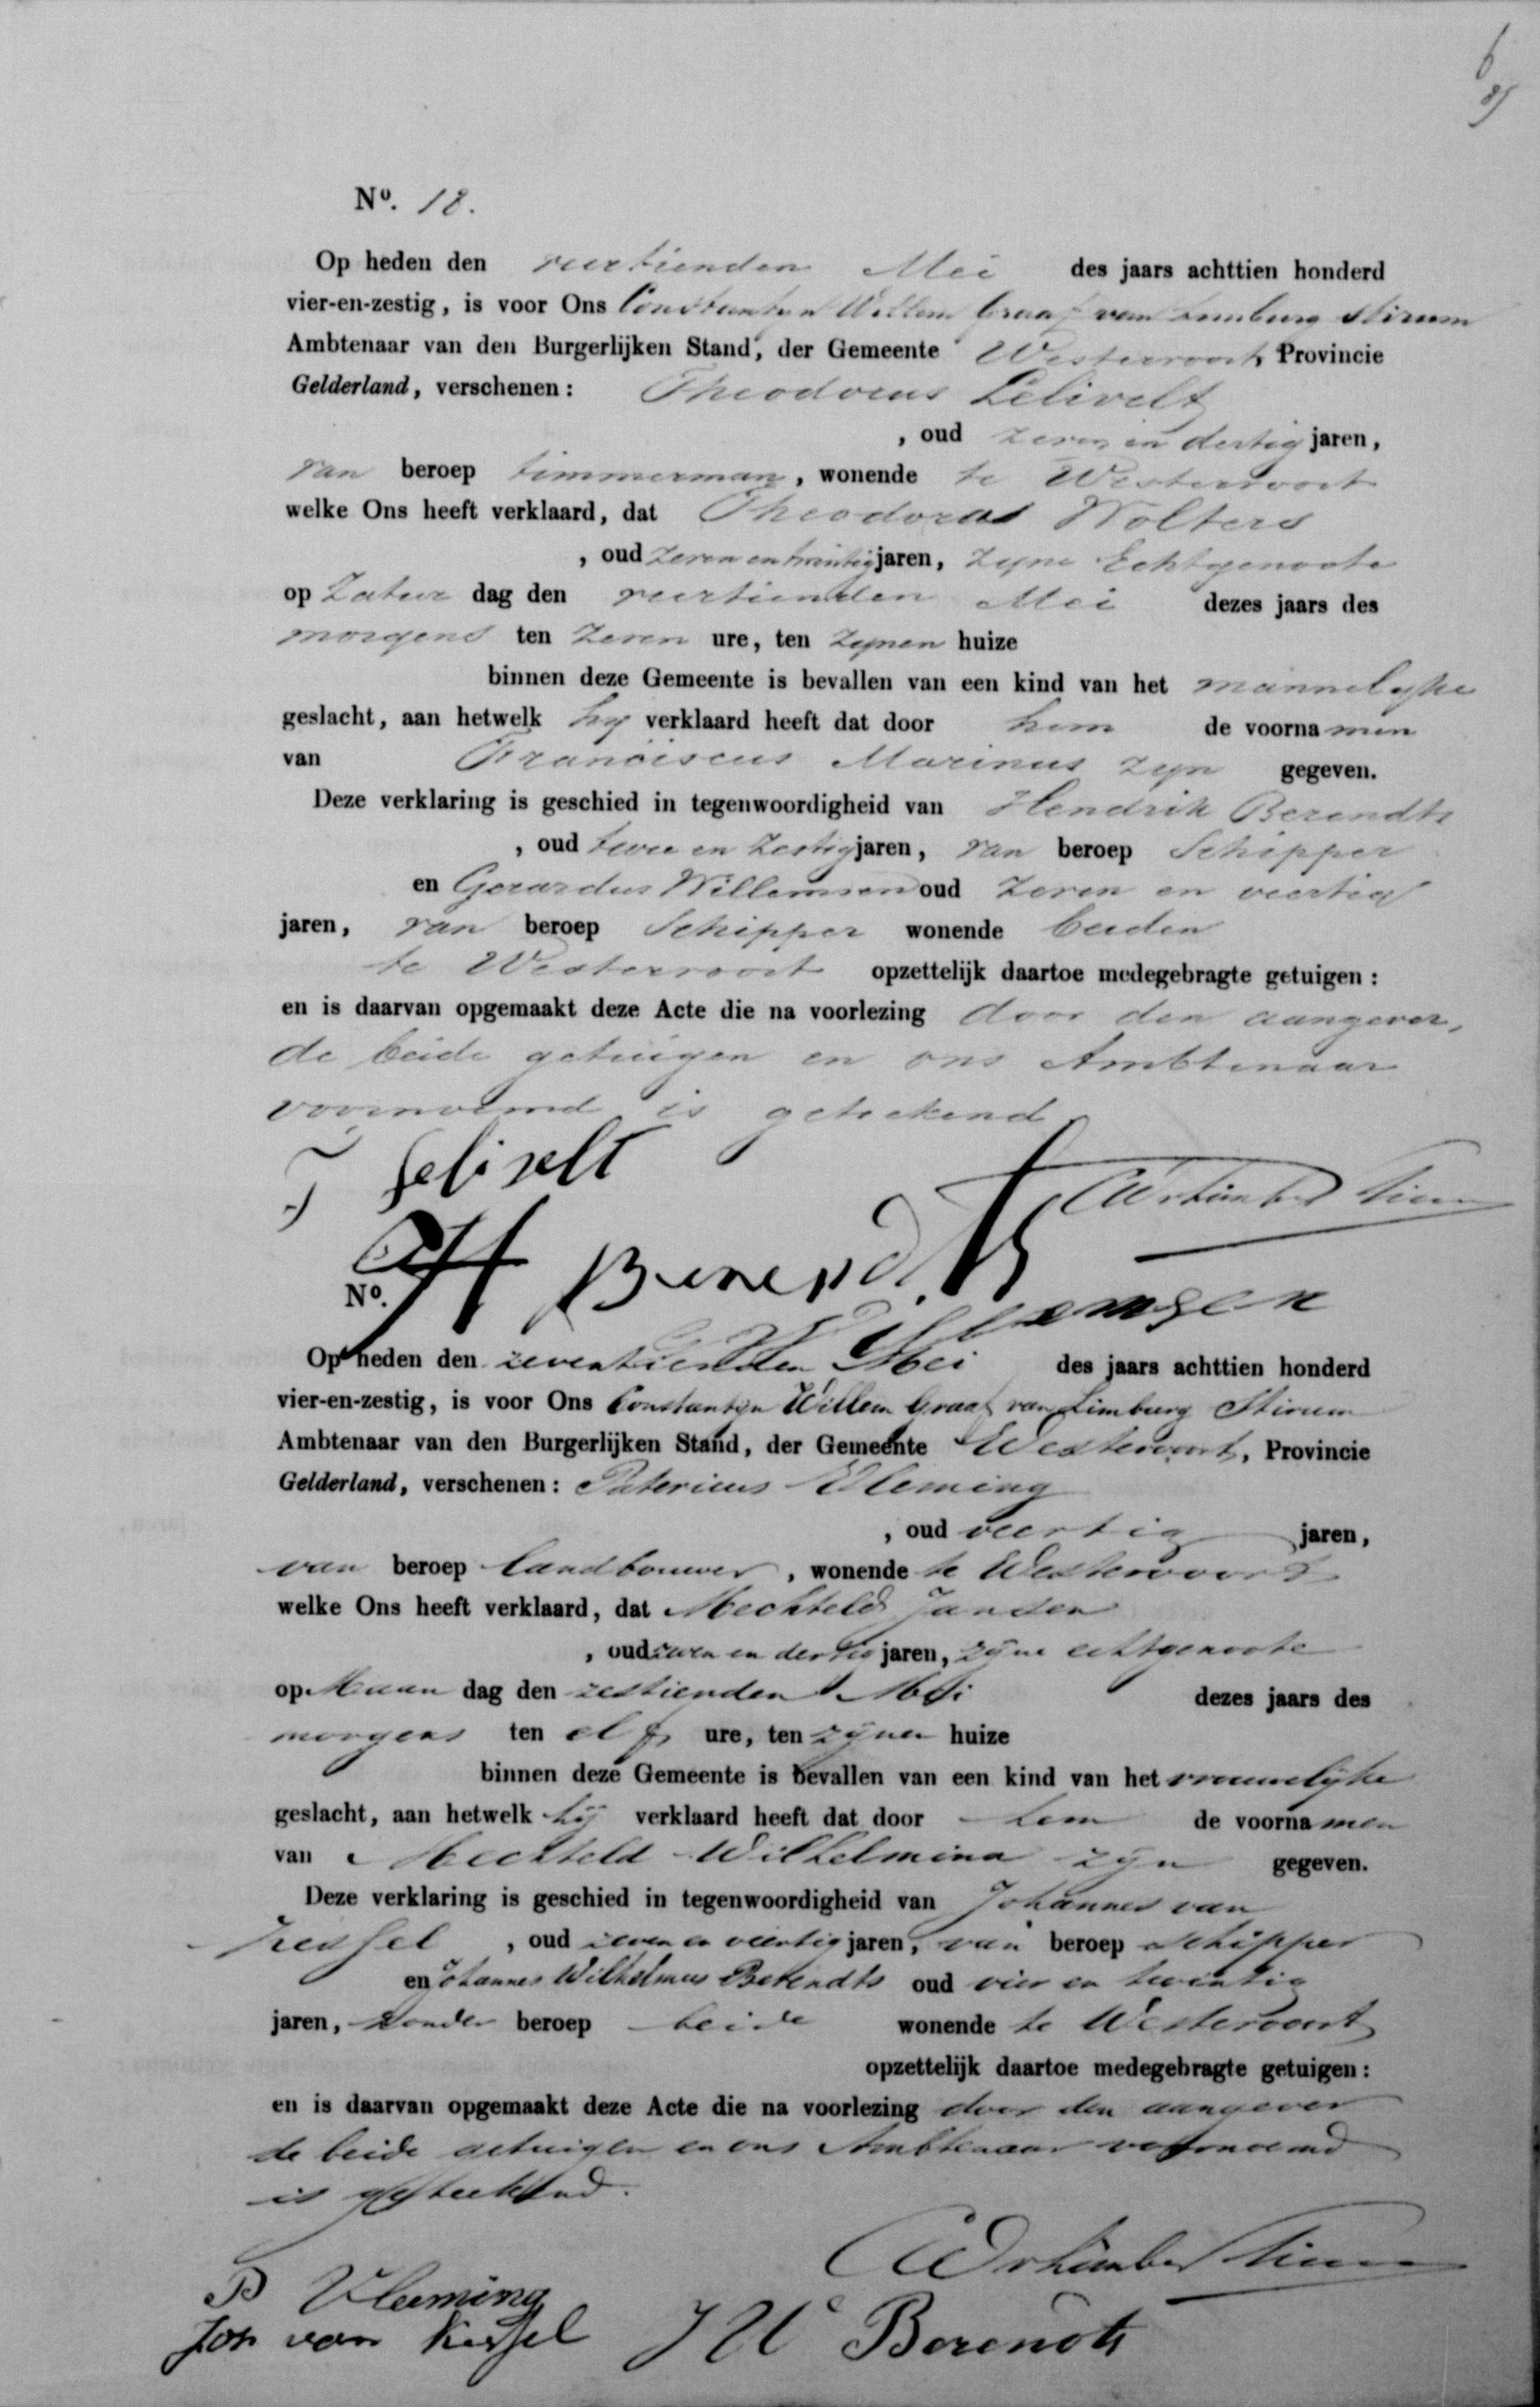 6
N⁰. 18.
Op heden den veertienden Mei des jaars achttien honderd
vier-en-zestig, is voor Ons Constantyn Willem Graaf van Limburg Stirum
Ambtenaar van den Burgerlijken Stand, der Gemeente Westervoort, Provincie
Gelderland, verschenen: Theodorus Lelivelt
, oud zeven en dertig jaren,
van beroep timmerman, wonende te Westervoort
welke Ons heeft verklaard, dat Theodora Wolters
, oud zeven en twintig jaren, zyne Echtgenoote
op Zatur dag den veertienden Mei dezes jaars des
morgens ten zeven ure, ten zynen huize
binnen deze Gemeente is bevallen van een kind van het mannelyke
geslacht, aan hetwelk hy verklaard heeft dat door hem de voornamen
van Franciscus Marinus zyn gegeven.
Deze verklaring is geschied in tegenwoordigheid van Hendrik Berendts
, oud twee en zestig jaren, van beroep Schipper
en Gerardus Willemsen oud zeven en veertig
jaren, van beroep Schipper wonende beiden
te Westervoort opzettelijk daartoe medegebragte getuigen:
en is daarvan opgemaakt deze Acte die na voorlezing door den aangever,
de beide getuigen en ons Ambtenaar
voornoemd is geteekend
T Leliselt
H Berendts
Willemsen
N⁰.
Op heden den zeventienden Mei des jaars achttien honderd
vier-en-zestig, is voor Ons Constantyn Willem Graaf van Limburg Stirum
Ambtenaar van den Burgerlijken Stand, der Gemeente Westervoort, Provincie
Gelderland, verschenen: Patericus Vleming
, oud veertig jaren,
van beroep landbouwer, wonende te Westervoort
welke Ons heeft verklaard, dat Mechteld Jansen
, oud zeven en dertig jaren, zijne echtgenoote
op Maan dag den zestienden Mei dezes jaars des
morgens ten elf ure, ten zijnen huize
binnen deze Gemeente is bevallen van een kind van het vrouwelijke
geslacht, aan hetwelk hij verklaard heeft dat door hem de voornamen
van Mechteld Wilhelmina zijn gegeven.
Deze verklaring is geschied in tegenwoordigheid van Johannes van
Kessel, oud zeven en veertig jaren, van beroep Schipper
en Johannes Wilhelmus Berendts oud vier en twintig
jaren, zonder beroep beide wonende te Westervoort
opzettelijk daartoe medegebragte getuigen:
en is daarvan opgemaakt deze Acte die na voorlezing door den aangever
de beide getuigen en ons Ambtenaar voornoemd
is geteekend.
P Vleeming
Joh van Kessel J W Berendts